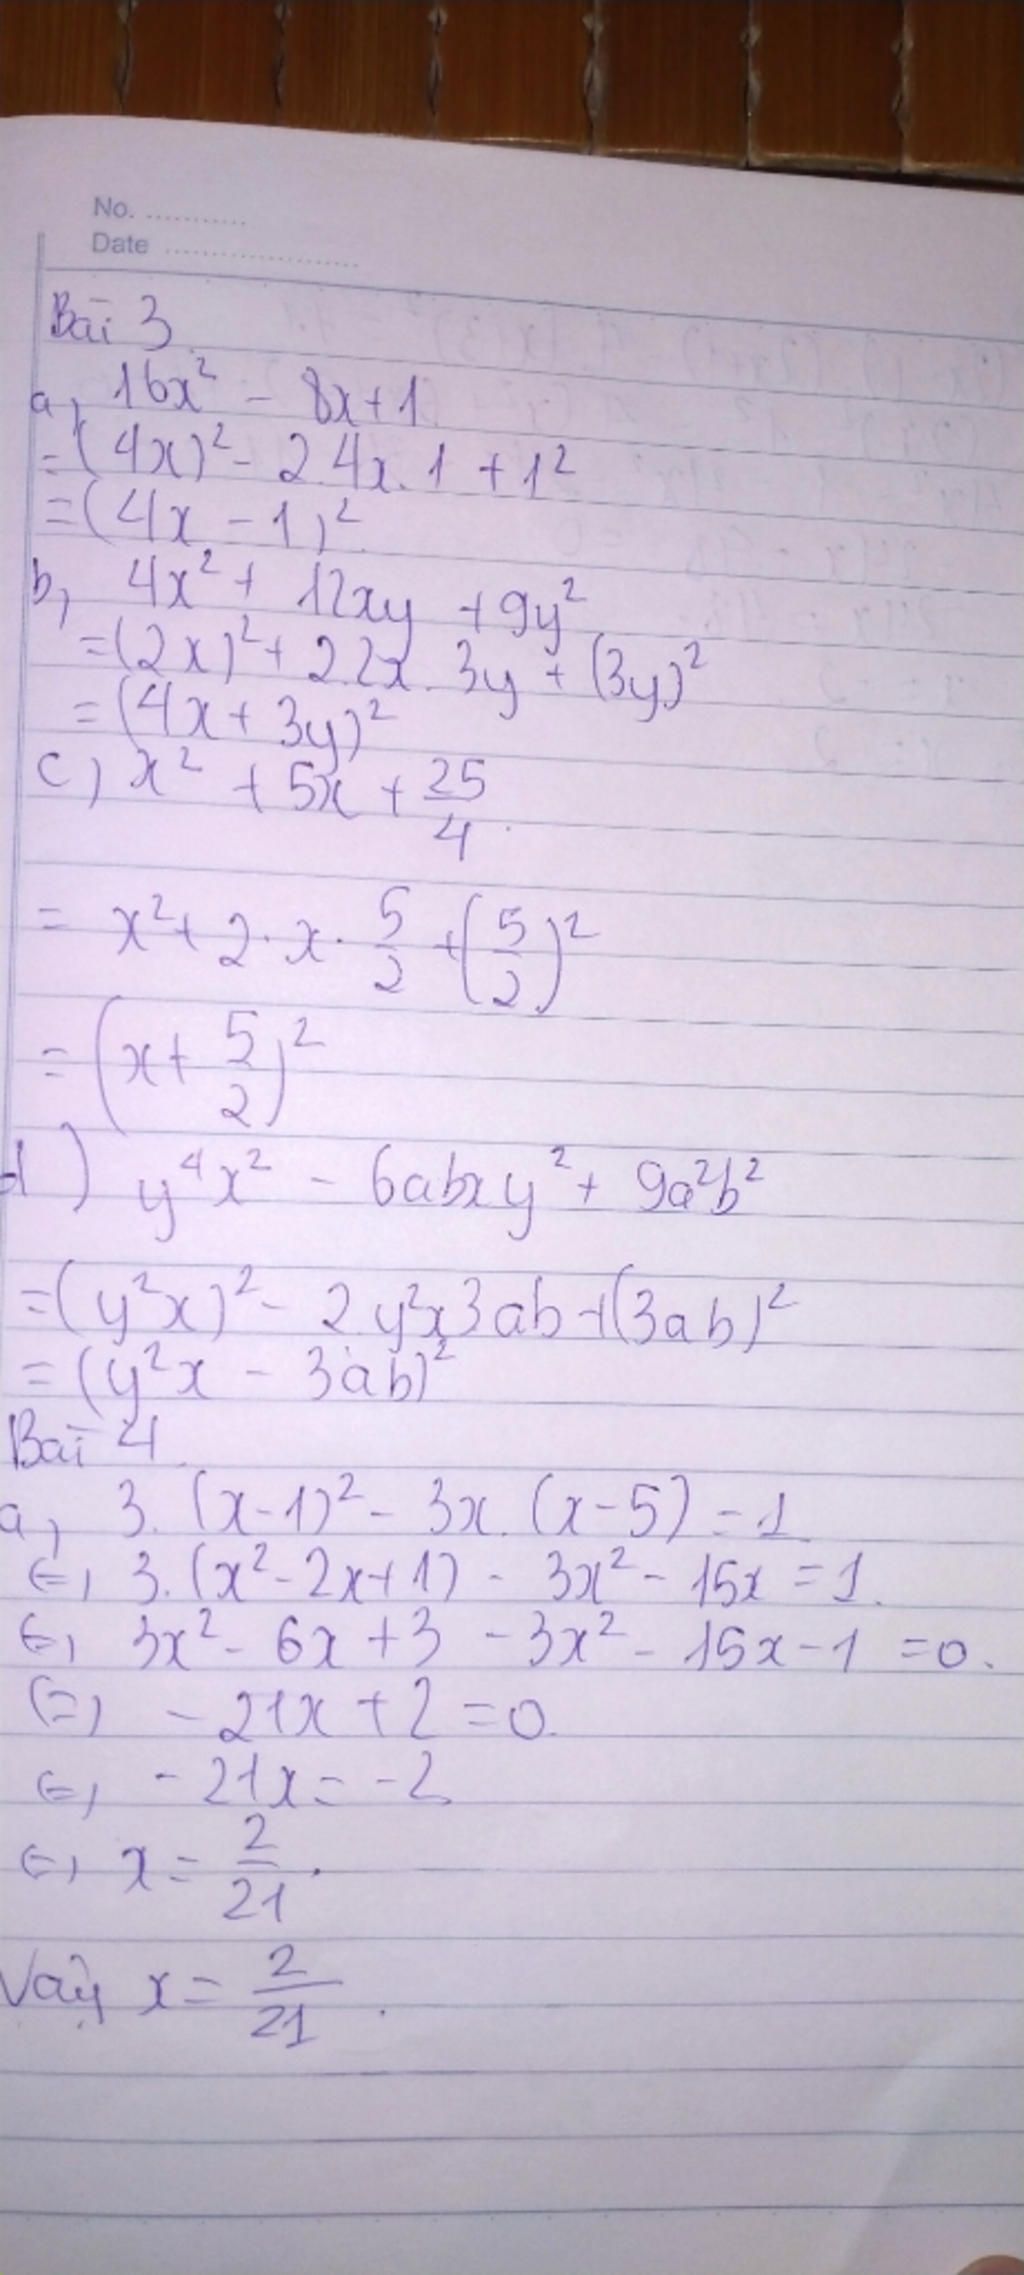 No. ...........
Date .....................
Bài 3
a, 16x² - 8x+1
=(4x)² - 2.4x.1 + 1²
=(4x - 1)²
b, 4x² + 12xy + 9y²
=(2x)² + 2.2x.3y + (3y)²
=(4x + 3y)²
c) x² + 5x + 25/4
= x² + 2.x.5/2 + (5/2)²
= (x + 5/2)²
d) y⁴x² - 6abxy² + 9a²b²
=(y²x)² - 2.y²x.3ab + (3ab)²
= (y²x - 3ab)²
Bài 4
a, 3.(x-1)² - 3x.(x-5) = 1
(=) 3.(x² - 2x + 1) - 3x² - 15x = 1.
(=) 3x² - 6x + 3 - 3x² - 15x - 1 = 0.
(=) - 21x + 2 = 0.
(=) - 21x = -2
(=) x = 2/21.
Vậy x = 2/21.